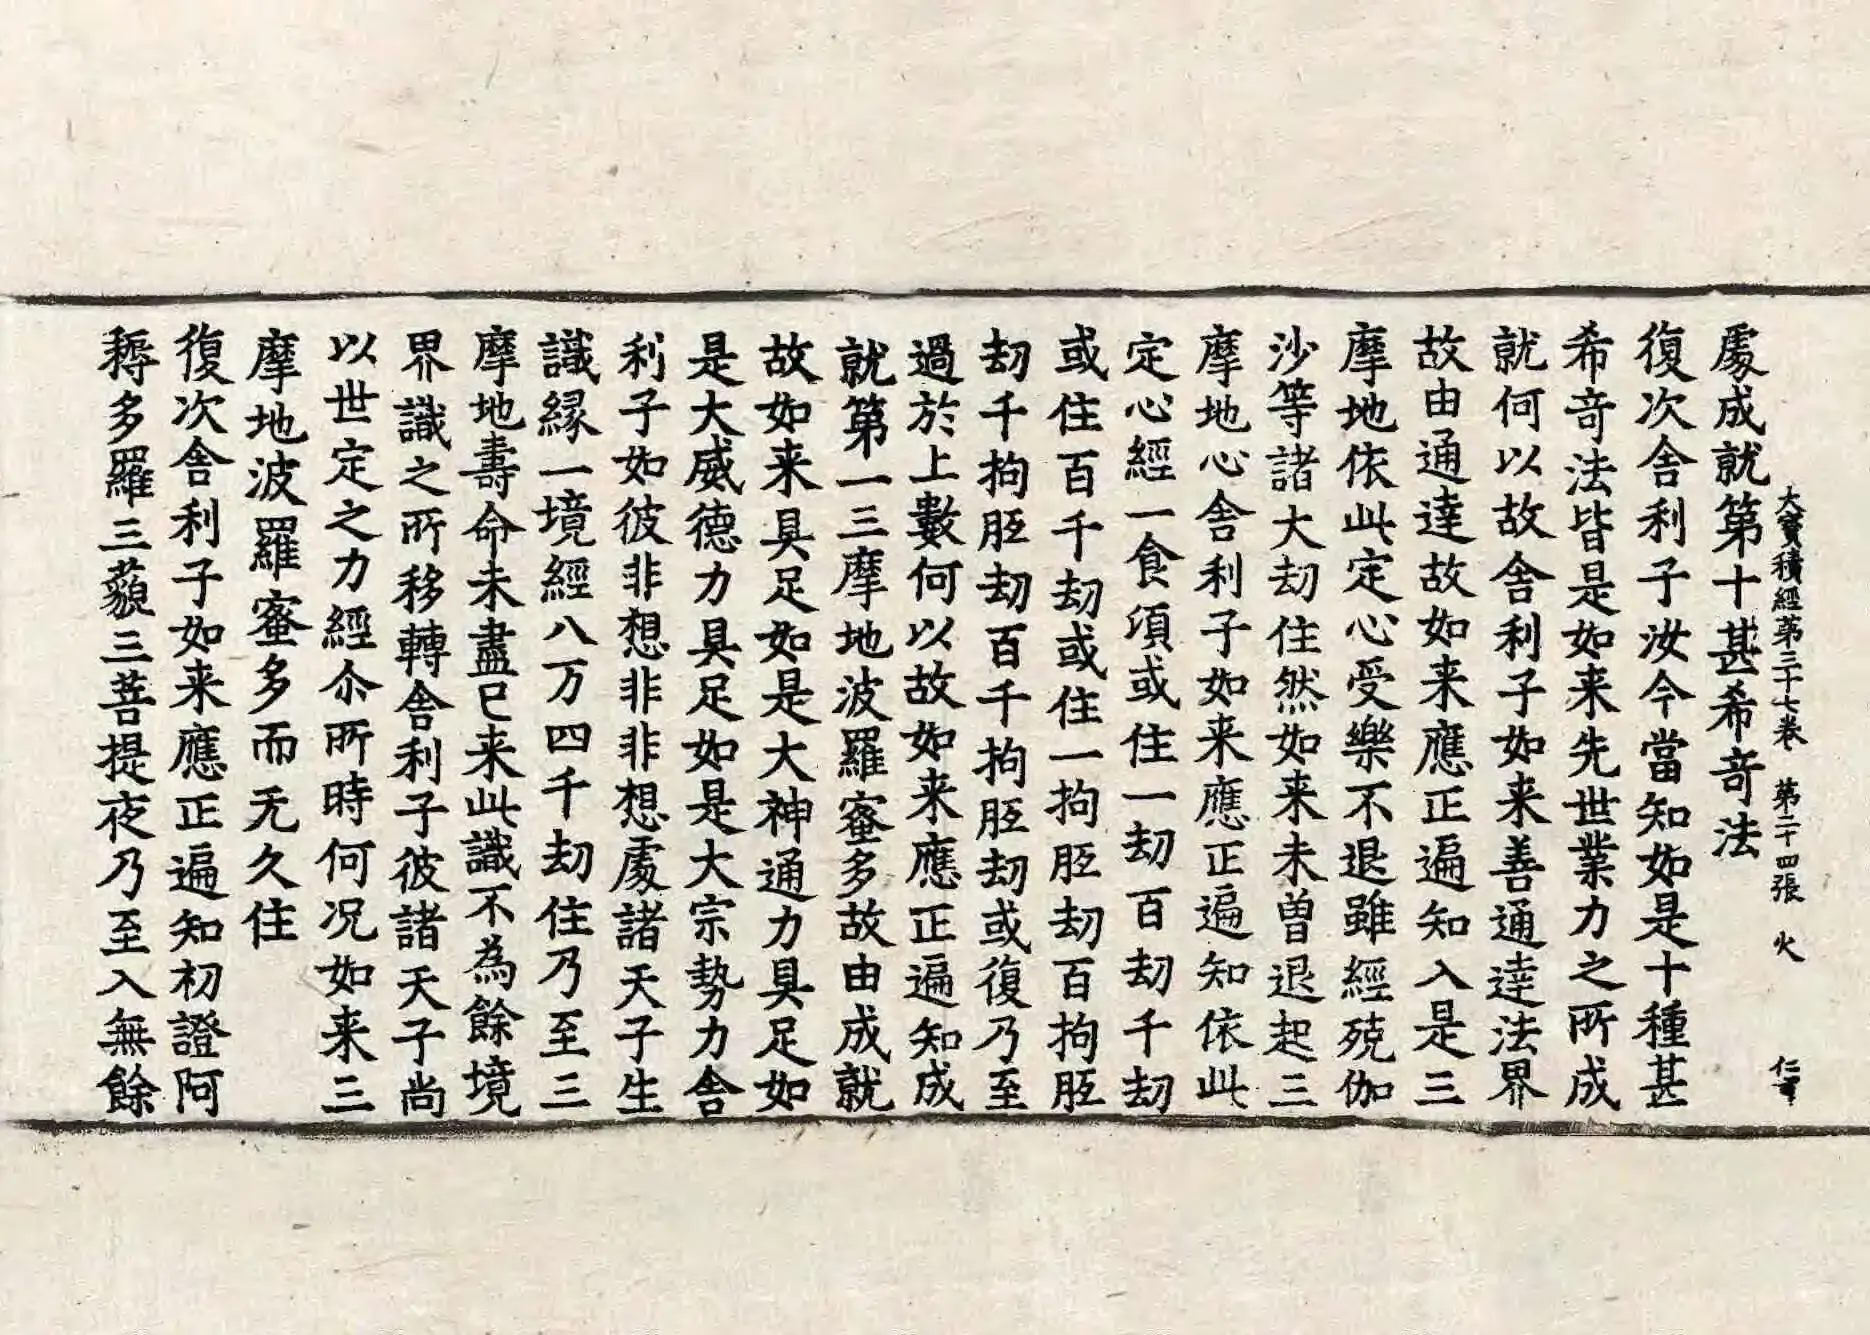 處成就第十甚希竒法
大寶積經第三十七卷　第二十四張　火
復次舍利子汝今當知如是十種甚
希竒法皆是如来先世業力之所成
就何以故舍利子如来善通達法界
故由通達故如来應正遍知入是三
摩地依此定心受樂不退雖經殑伽
沙等諸大劫住然如来未曽退起三
摩地心舍利子如来應正遍知依此
定心經一食湏或住一劫百劫千劫
或住百千劫或住一拘胝劫百拘胝
劫千拘胝劫百千拘胝劫或復乃至
過於上數何以故如来應正遍知成
就第一三摩地波羅蜜多故由成就
故如来具足如是大神通力具足如
是大威德力具足如是大宗勢力舍
利子如彼非想非非想處諸天子生
識縁一境經八万四千劫住乃至三
摩地壽命未盡已来此識不為餘境
界識之所移轉舍利子彼諸天子尚
以世定之力經尒所時何况如来三
摩地波羅蜜多而无久住
復次舍利子如来應正遍知初證阿
耨多羅三藐三菩提夜乃至入無餘